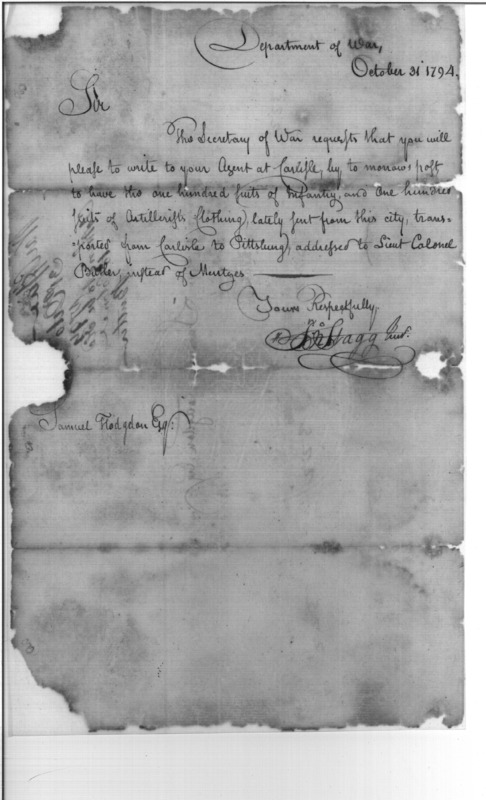 Department of War,
October 31st 1794.
Sir
The Secretary of War requests that you will
please to write to your Agent at Carlisle, by to morrows post
to have the one hundred suits of Infantry, and one hundred
suits of Artillerists Clothing, lately sent from this city, trans=
=ported from Carlisle to Pittsburg, addressed to Lieut Colonel
Butler, instead of Mentges
Yours Respectfully.
Stagg Junr.
Samuel Hodgdon Esqr.